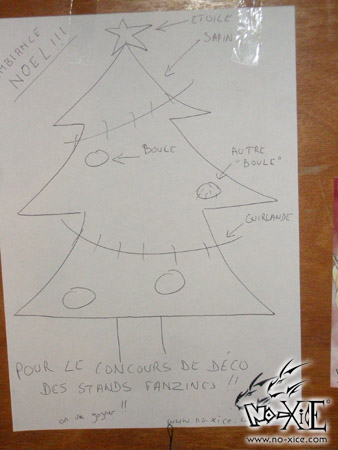 AMBIANCE
NOEL!!!
ETOILE
SAPIN
BOULE
AUTRE
"BOULE"
GUIRLANDE
POUR LE CONCOURS DE DÉCO
DES STANDS FANZINES !!
on va gagner !!
www.no-xice.
NO-XICE
www.no-xice.com